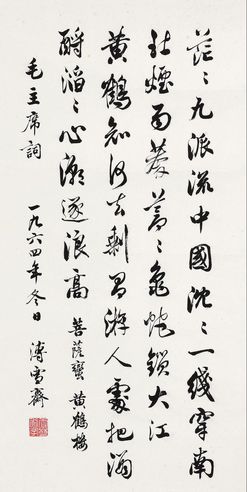 茫〻九派流中國沈〻一綫穿南
北煙雨莽蒼〻龜蛇鎖大江
黄鶴知何去剩有游人處把酒
酹滔〻心潮逐浪高 菩薩蠻 黄鶴樓
毛主席詞 一九六四年冬日 溥雪齋